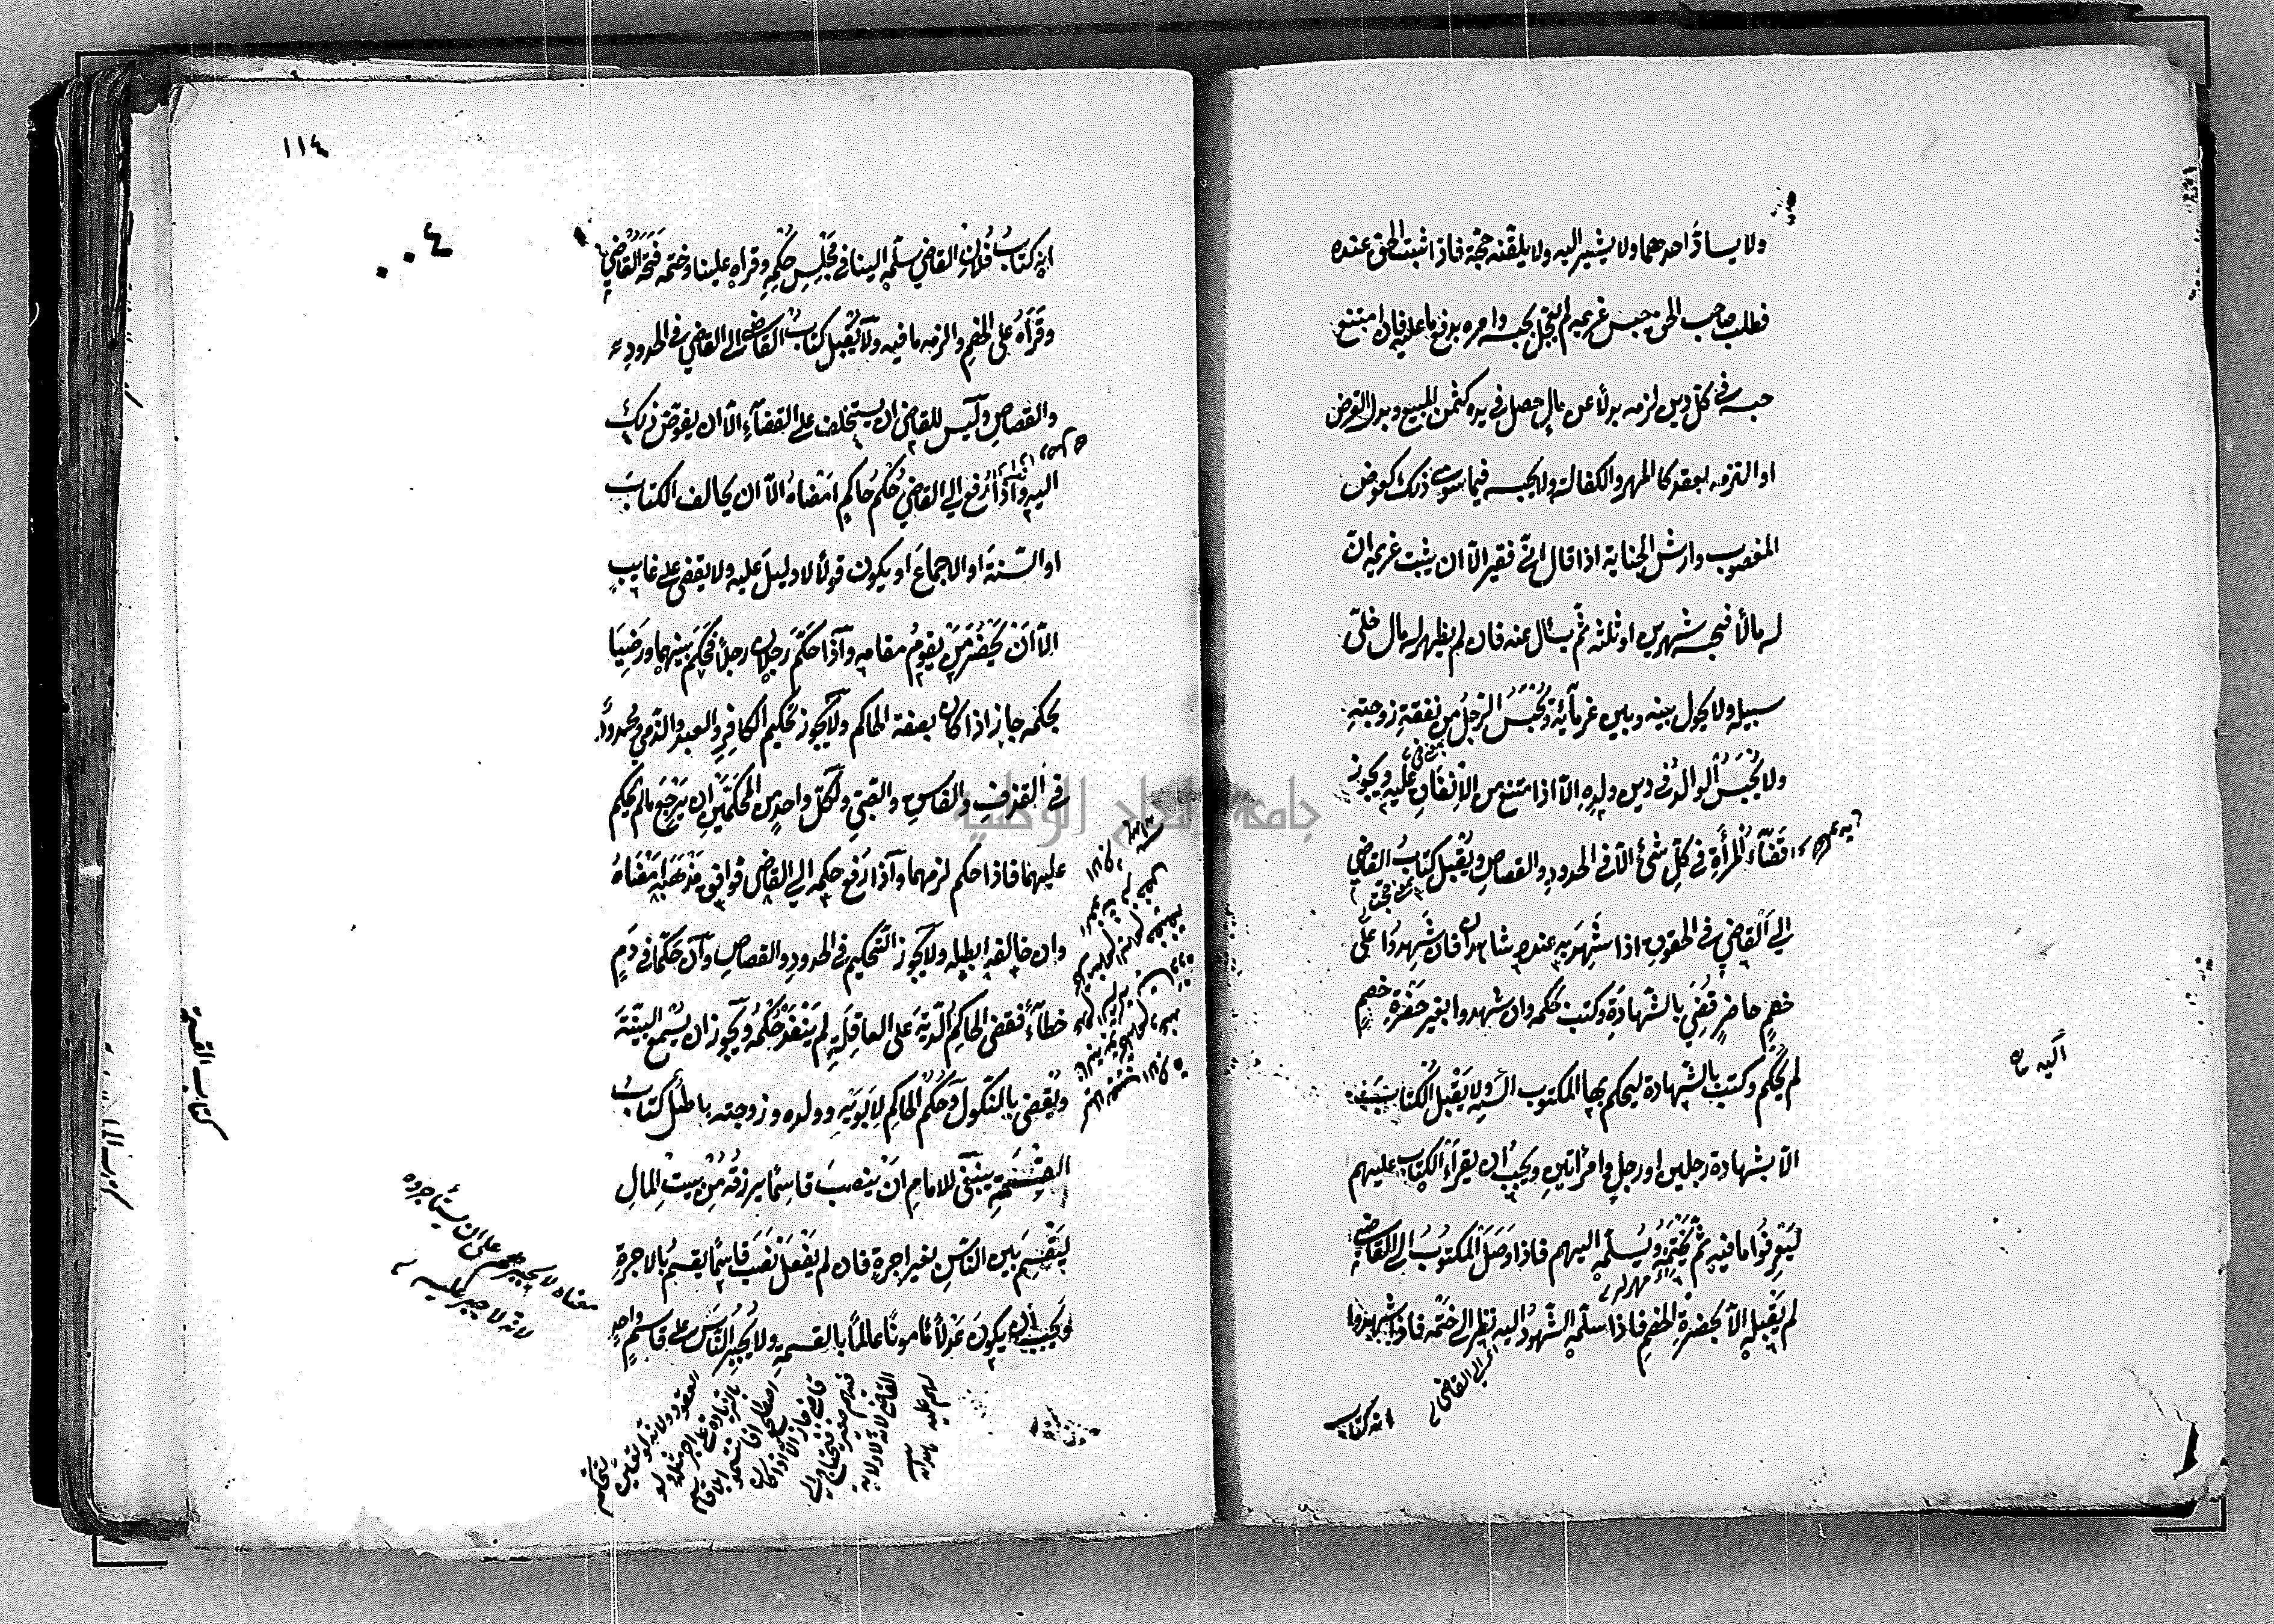 ولا يسارّ احدهما ولا يشير اليه ولا يلقنه حجة فاذا ثبت الحق عنده
فطلب صاحب الحق حبس غريمه لم يعجل بحبسه وامره بدفع ما عليه فان امتنع
حبسه في كل دين لزمه بدلا عن مال حصل في يده كثمن المبيع وبدل القرض
او التزمه بعقد كالمهر والكفالة ولا يحبسه فيما سوى ذلك كعوض
المغصوب وارش الجناية اذا قال اني فقير الا ان يثبت غريمه ان
له مالا فيحبسه شهرين او ثلثة ثم يسال عنه فان لم يظهر له مال خلى
سبيله ولا يحول بينه وبين غرمائه ويحبس الرجل من نفقة زوجته
ولا يحبس الوالد في دين ولده الا اذا امتنع من الانفاق عليه ويجوز
قضاء المرأة في كل شئ الا في الحدود والقصاص ويقبل كتاب القاضي
الى القاضي في الحقوق اذا شهد به عنده شاهدان فان شهدوا على
خصم حاضر قضي بالشهادة وكتب بحكمه وان شهدوا بغير حضرة خصم
لم يحكم وكتب بالشهادة ليحكم بها المكتوب اليه ولا يقبل الكتاب
الا بشهادة رجلين او رجل وامرأتين ويجب ان يقرأ الكتاب عليهم
ليعرفوا ما فيه ثم يختمه ويسلمه اليهم فاذا وصل المكتوب الى القاضي
لم يقبله الا بحضرة الخصم فاذا سلمه الشهود اليه نظر الى ختمه فاذا شهدوا
اي الى القاضي
انه كتاب
١١٤
٤٠٠
انه كتاب فلان القاضي سلمه الينا في مجلس حكمه وقراه علينا وختمه فتحه القاضي
وقرأه على الخصم والزمه ما فيه ولا يقبل كتاب القاضي الى القاضي في الحدود
والقصاص وليس للقاضي ان يستخلف على القضاء الا ان يفوض ذلك
اليه واذا رفع الى القاضي حكم حاكم امضاه الا ان يخالف الكتاب
او السنة او الاجماع او يكون قولا لا دليل عليه ولا يقضي على غايب
الا ان يحضر من يقوم مقامه واذا حكم رجلان رجلا فحكم بينهما ورضيا
بحكمه جاز اذا كان بصفة الحاكم ولا يجوز تحكيم الكافر والعبد والذمي ومحدود
في القذف والفاسق والصبي ولكل واحد من المحكمين ان يرجع ما لم يحكم
عليهما فاذا حكم لزمهما واذا رفع حكمه الى القاضي فوافق مذهبه امضاه
وان خالفه ابطله ولا يجوز التحكيم في الحدود والقصاص وان حكما في دم
خطاء فقضى الحاكم الدية على العاقلة لم ينفذ حكمه ويجوز ان يسمع البينة
ويقضي بالنكول وحكم الحاكم لابويه وولده وزوجته باطل كتاب
القسمة ينبغي للامام ان ينصب قاسما يرزقه من بيت المال
ليقسم بين الناس بغير اجرة فان لم يفعل نصب قاسما يقسم بالاجرة
ويجب ان يكون عدلا مامونا عالما بالقسمة ولا يجبر الناس على قاسم واحد
كتاب القسمة
معناه لا يجبرهم على ان يستأجروه
لانه لا جبر عليه
جامعة النجاح الوطنية